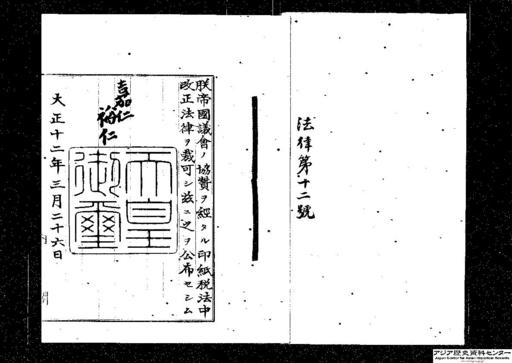 法律第十二號
朕帝國議會ノ協贊ヲ經タル印紙税法中
改正法律ヲ裁可シ茲ニ之ヲ公布セシム
嘉仁
裕仁
天皇
御璽
大正十二年三月二十六日
アジア歴史資料センター
Japan Center for Asian Historical Records